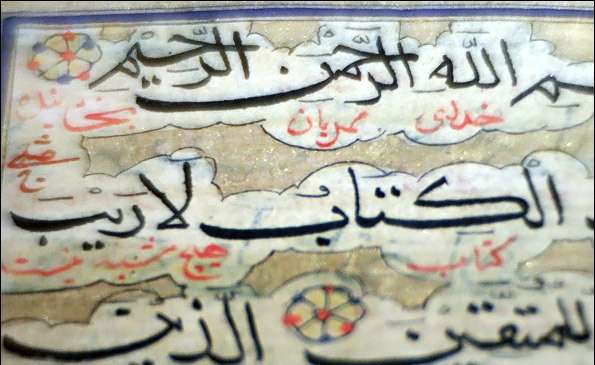 ـم اللّٰه الرَّحْمٰن الرَّحِيْم
خدای مهربان بخشاینده
الْكتاب لا رَيْبَ
کتاب هیچ شبه نیست
للمتقين الَّذين